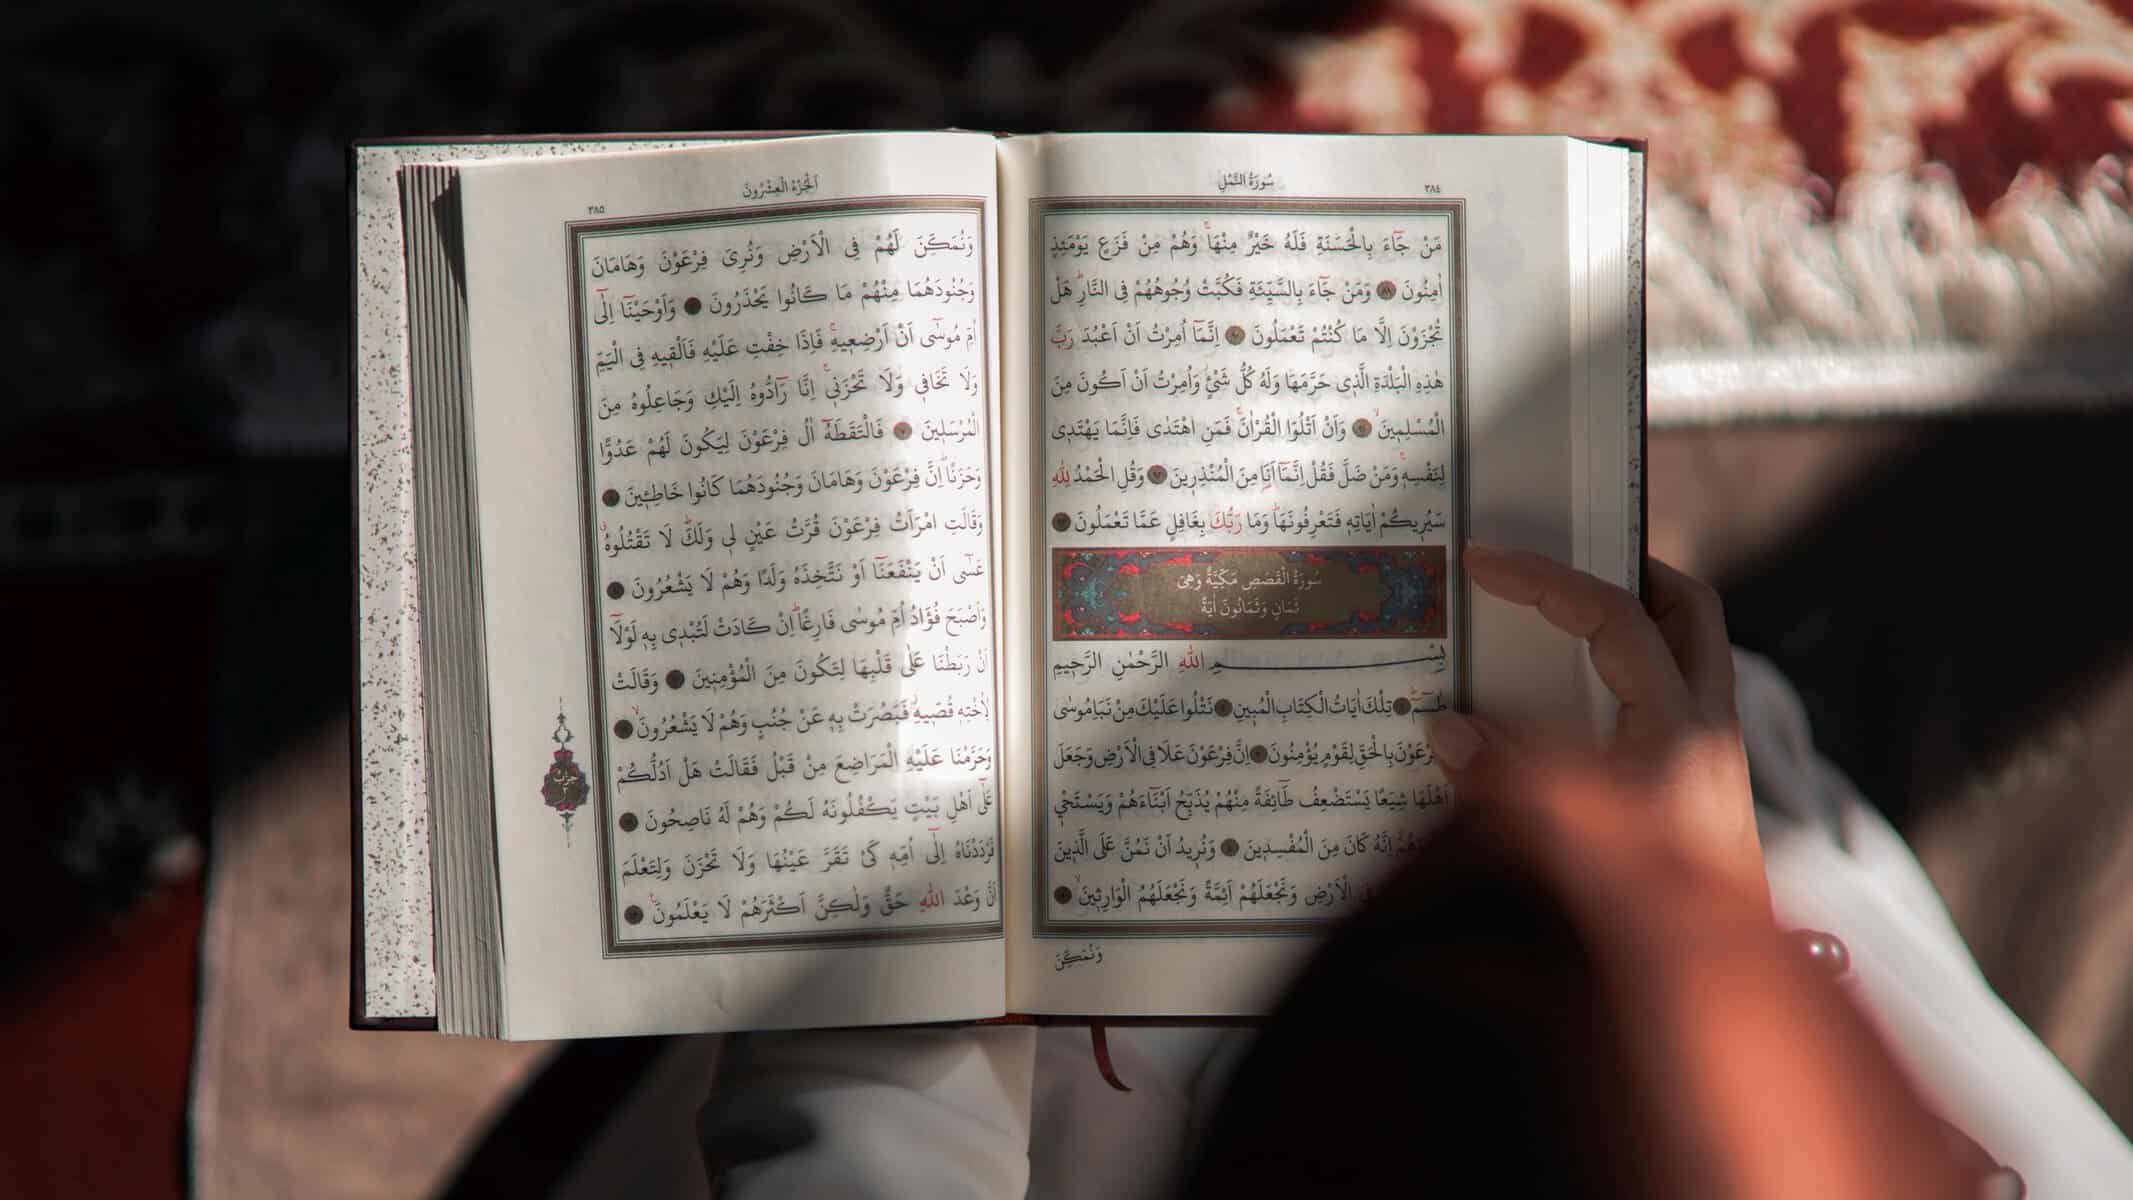 سُورَةُ النَّمْلِ ٣٨٤
مَنْ جَٓاءَ بِالْحَسَنَةِ فَلَهُ خَيْرٌ مِنْهَاۚ وَهُمْ مِنْ فَزَعٍ يَوْمَئِذٍ
اٰمِنُونَ ﴿٨٩﴾ وَمَنْ جَٓاءَ بِالسَّيِّئَةِ فَكُبَّتْ وُجُوهُهُمْ فِى النَّارِۜ هَلْ
تُجْزَوْنَ اِلَّا مَا كُنْتُمْ تَعْمَلُونَ ﴿٩٠﴾ اِنَّمَٓا اُمِرْتُ اَنْ اَعْبُدَ رَبَّ
هٰذِهِ الْبَلْدَةِ الَّذِى حَرَّمَهَا وَلَهُ كُلُّ شَىْءٍۘ وَاُمِرْتُ اَنْ اَكُونَ مِنَ
الْمُسْلِمِينَۙ ﴿٩١﴾ وَاَنْ اَتْلُوَا الْقُرْاٰنَۚ فَمَنِ اهْتَدٰى فَاِنَّمَا يَهْتَدِى
لِنَفْسِهِۚ وَمَنْ ضَلَّ فَقُلْ اِنَّمَٓا اَنَا مِنَ الْمُنْذِرِينَ ﴿٩٢﴾ وَقُلِ الْحَمْدُ لِلّٰهِ
سَيُرِيكُمْ اٰيَاتِهِ فَتَعْرِفُونَهَاۜ وَمَا رَبُّكَ بِغَافِلٍ عَمَّا تَعْمَلُونَ
سُورَةُ الْقَصَصِ مَكِّيَّةٌ وَهِىَ
ثَمَانٍ وَثَمَانُونَ اٰيَةً
بِسْمِ اللّٰهِ الرَّحْمٰنِ الرَّحِيمِ
طٰسٓمٓ تِلْكَ اٰيَاتُ الْكِتَابِ الْمُبِينِ نَتْلُوا عَلَيْكَ مِنْ نَبَاِ مُوسٰى
بِالْحَقِّ لِقَوْمٍ يُؤْمِنُونَ اِنَّ فِرْعَوْنَ عَلَا فِى الْاَرْضِ وَجَعَلَ
اَهْلَهَا شِيَعًا يَسْتَضْعِفُ طَٓائِفَةً مِنْهُمْ يُذَبِّحُ اَبْنَٓاءَهُمْ وَيَسْتَحْيِ
اِنَّهُ كَانَ مِنَ الْمُفْسِدِينَ وَنُرِيدُ اَنْ نَمُنَّ عَلَى الَّذِينَ
الْاَرْضِ وَنَجْعَلَهُمْ اَئِمَّةً وَنَجْعَلَهُمُ الْوَارِثِينَۙ
وَنُمَكِّنَ
اَلْجُزْءُ الْعِشْرُونَ ٣٨٥
وَنُمَكِّنَ لَهُمْ فِى الْاَرْضِ وَنُرِىَ فِرْعَوْنَ وَهَامَانَ
وَجُنُودَهُمَا مِنْهُمْ مَا كَانُوا يَحْذَرُونَ وَاَوْحَيْنَٓا اِلٰٓى
اُمِّ مُوسٰٓى اَنْ اَرْضِعِيهِۚ فَاِذَا خِفْتِ عَلَيْهِ فَاَلْقِيهِ فِى الْيَمِّ
وَلَا تَخَافِى وَلَا تَحْزَنِىۚ اِنَّا رَٓادُّوهُ اِلَيْكِ وَجَاعِلُوهُ مِنَ
الْمُرْسَلِينَ ﴿٧﴾ فَالْتَقَطَهُٓ اٰلُ فِرْعَوْنَ لِيَكُونَ لَهُمْ عَدُوًّا
وَحَزَنًاۜ اِنَّ فِرْعَوْنَ وَهَامَانَ وَجُنُودَهُمَا كَانُوا خَاطِئِينَ
وَقَالَتِ امْرَاَتُ فِرْعَوْنَ قُرَّتُ عَيْنٍ لِى وَلَكَۜ لَا تَقْتُلُوهُ
عَسٰٓى اَنْ يَنْفَعَنَٓا اَوْ نَتَّخِذَهُ وَلَدًا وَهُمْ لَا يَشْعُرُونَ
وَاَصْبَحَ فُؤَادُ اُمِّ مُوسٰى فَارِغًاۜ اِنْ كَادَتْ لَتُبْدِى بِهِ لَوْلَٓا
اَنْ رَبَطْنَا عَلٰى قَلْبِهَا لِتَكُونَ مِنَ الْمُؤْمِنِينَ وَقَالَتْ
لِاُخْتِهِ قُصِّيهِۘ فَبَصُرَتْ بِهِ عَنْ جُنُبٍ وَهُمْ لَا يَشْعُرُونَۙ
وَحَرَّمْنَا عَلَيْهِ الْمَرَاضِعَ مِنْ قَبْلُ فَقَالَتْ هَلْ اَدُلُّكُمْ
عَلٰٓى اَهْلِ بَيْتٍ يَكْفُلُونَهُ لَكُمْ وَهُمْ لَهُ نَاصِحُونَ
فَرَدَدْنَاهُ اِلٰٓى اُمِّهِ كَىْ تَقَرَّ عَيْنُهَا وَلَا تَحْزَنَ وَلِتَعْلَمَ
اَنَّ وَعْدَ اللّٰهِ حَقٌّ وَلٰكِنَّ اَكْثَرَهُمْ لَا يَعْلَمُونَ
حِزْبٌ
٢